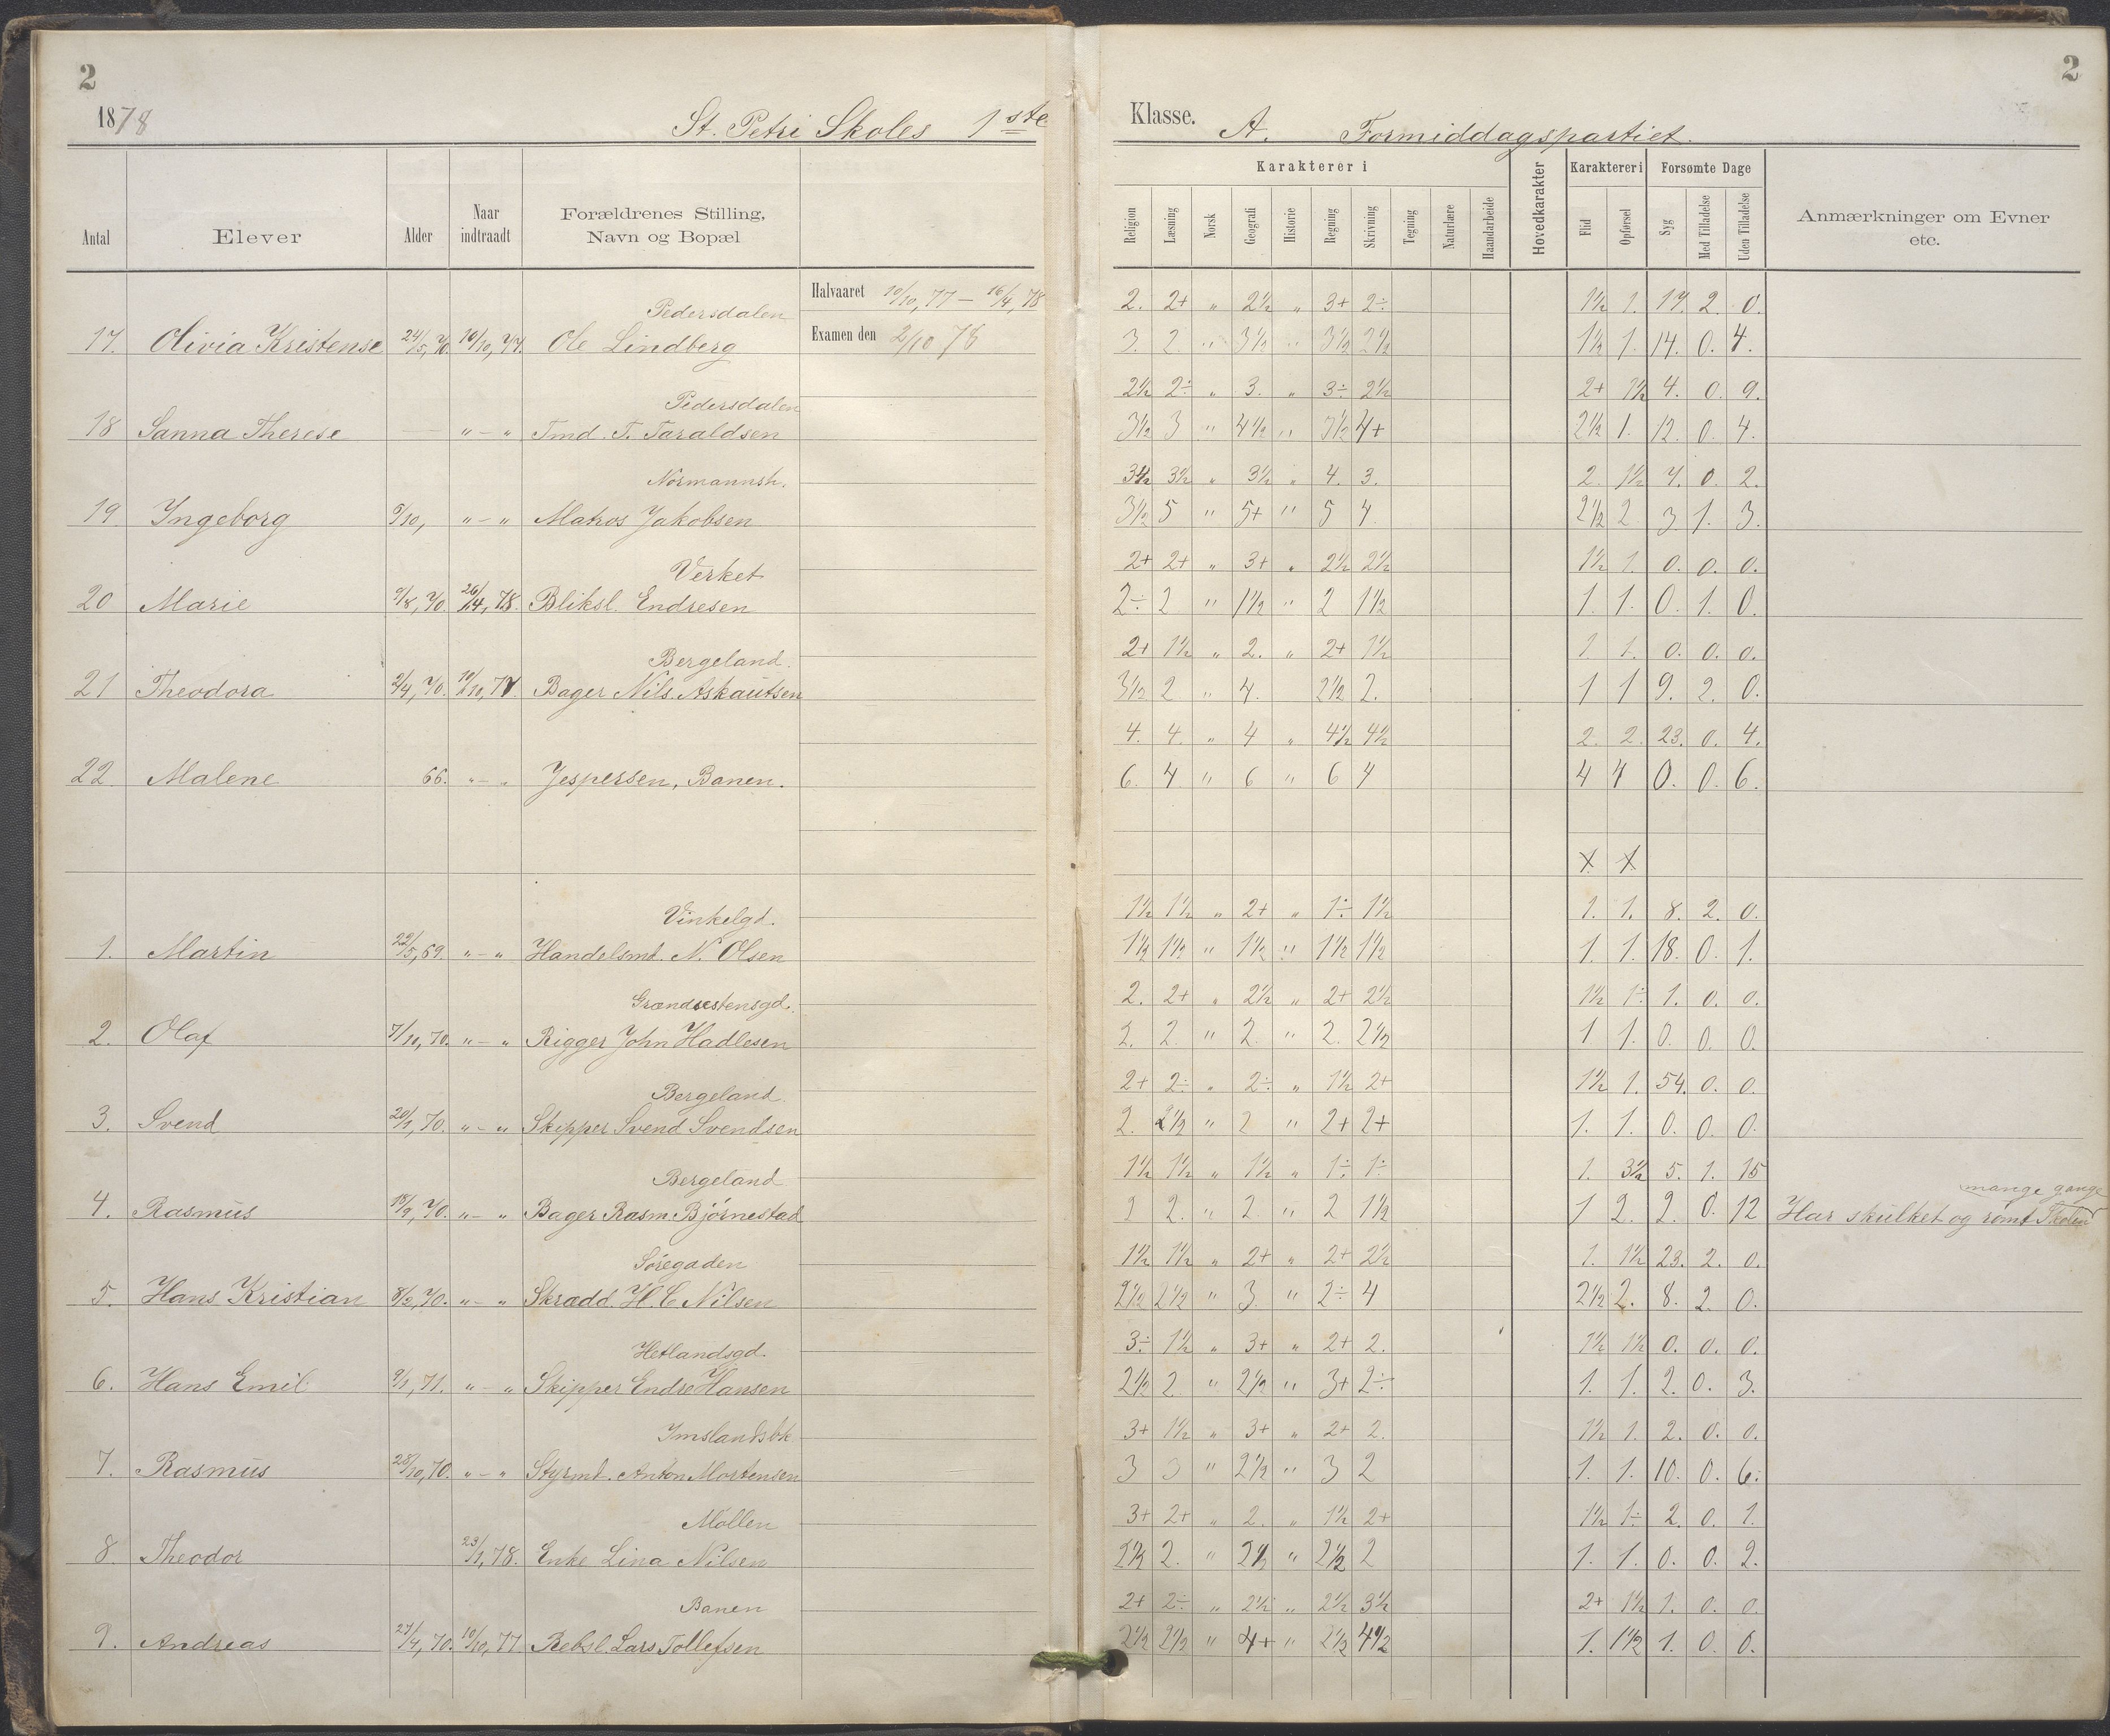 2
2
1878 St. Petri Skoles 1ste Klasse. A. Formiddagspartiet.
Antal Elever Alder Naar indtraadt Forældrenes Stilling, Navn og Bopæl Karakterer i Hovedkarakter Karakterer i Forsømte Dage Anmærkninger om Evner etc.
Religion Læsning Norsk Geografi Historie Regning Skrivning Tegning Naturlære Haandarbeide Flid Opførsel Syg Med Tilladelse Uden Tilladelse
Pedersdalen Halvaaret 10/10, 77 — 16/4, 78 2. 2+ " 2½ " 3+ 2÷ 1½ 1. 17. 2. 0.
17. Olivia Kristense 24/5, 70. 10/10, 77. Ole Lindberg Examen den 2/10 78 3. 2. " 3½ " 3½ 2½ 1½ 1. 14. 0. 4.
Pedersdalen 2½ 2÷ " 3. " 3÷ 2½ 2+ 1½ 4. 0. 9.
18 Sanna Therese — " — " Tmd. T. Taraldsen 3½ 3 " 4½ " 3½ 4+ 2½ 1. 12. 0. 4.
Normannsh. 3½ 3½ " 3½ " 4. 3. 2. 1½ 7. 0. 2.
19. Ingeborg 9/10, " — " Matros Jakobsen 3½ 5 " 5+ " 5 4. 2½ 2 3. 1. 3.
Verket 2+ 2+ " 3+ " 2½ 2½ 1½ 1. 0. 0. 0.
20 Marie 9/8, 70. 26/4, 78. Bliksl. Endresen 2÷ 2 " 1½ " 2 1½ 1. 1. 0. 1. 0.
Bergeland. 2+ 1½ " 2. " 2+ 1½ 1. 1. 0. 0. 0.
21 Theodora 2/4, 70. 10/10, 77. Bager Nils Askautsen 3½ 2 " 4. 2½ 2. 1 1 9. 2. 0.
4. 4. " 4 " 4½ 4½ 2. 2. 23. 0. 4.
22. Malene 66. " — " Jespersen, Banen. 6. 4. " 6 " 6 4 4 4 0. 0. 6.
X X
Vinkelgd. 1½ 1½ " 2+ " 1÷ 1½ 1. 1. 8. 2. 0.
1. Martin 22/5, 69. " — " Handelsmd. N. Olsen 1½ 1½ " 1½ " 1½ 1½ 1. 1. 18. 0. 1.
Grændsestensgd. 2. 2+ " 2½ " 2+ 2½ 1½ 1÷ 1. 0. 0.
2. Olaf 7/10, 70. " — " Rigger John Hadlesen 2. 2. " 2. " 2. 2½ 1 1. 0. 0. 0.
Bergeland. 2+ 2÷ " 2÷ " 1½ 2+ 1½ 1. 54. 0. 0.
3. Svend 20/1, 70. " — " Skipper Svend Svendsen 2. 2½ " 2 " 2+ 2+ 1. 1. 0. 0. 0.
Bergeland 1½ 1½ " 1½ " 1÷ 1÷ 1. 3½ 5. 1. 15 mange gange
4. Rasmus 18/9, 70. " — " Bager Rasm. Bjørnestad 2 2. " 2. " 2 1½ 1 2. 2. 0. 12 Har skulket og rømt Skolen
Søregaden 1½ 1½ " 2+ " 2+ 2½ 1. 1½ 23. 2. 0.
5. Hans Kristian 8/2, 70. " — " Skrædd. H. C Nilsen 2½ 2½ " 3. " 2÷ 4 2½ 2. 8. 2. 0.
Hetlandsgd. 3÷ 1½ " 3+ " 2+ 2. 1½ 1½ 0. 0. 0.
6. Hans Emil 9/1, 71. " — " Skipper Endre Hansen 2½ 2 " 2½ " 3+ 2÷ 1. 1. 2. 0. 3.
Imslandsbk. 3+ 1½ " 3+ " 2+ 2. 1½ 1. 2. 0. 0.
7. Rasmus 28/10, 70. " — " Styrmd. Anton Mortensen 3 3 " 2½ " 3 2 1. 1. 10. 0. 6.
Møllen 3+ 2+ " 2. " 1½ 2+ 1½ 1÷ 2. 0. 1.
8. Theodor 23/1, 78. Enke Lina Nilsen 2½ 2. " 2½ " 2½ 2 1. 1. 0. 0. 2.
Banen 2+ 2÷ " 2½ " 2½ 3½ 2+ 1½ 1. 0. 0.
9. Andreas 27/4, 70. 10/10, 77 Rebsl. Lars Tollefsen 2½ 2½ " 4+ " 2½ 4½ 1. 1½ 1. 0. 0.